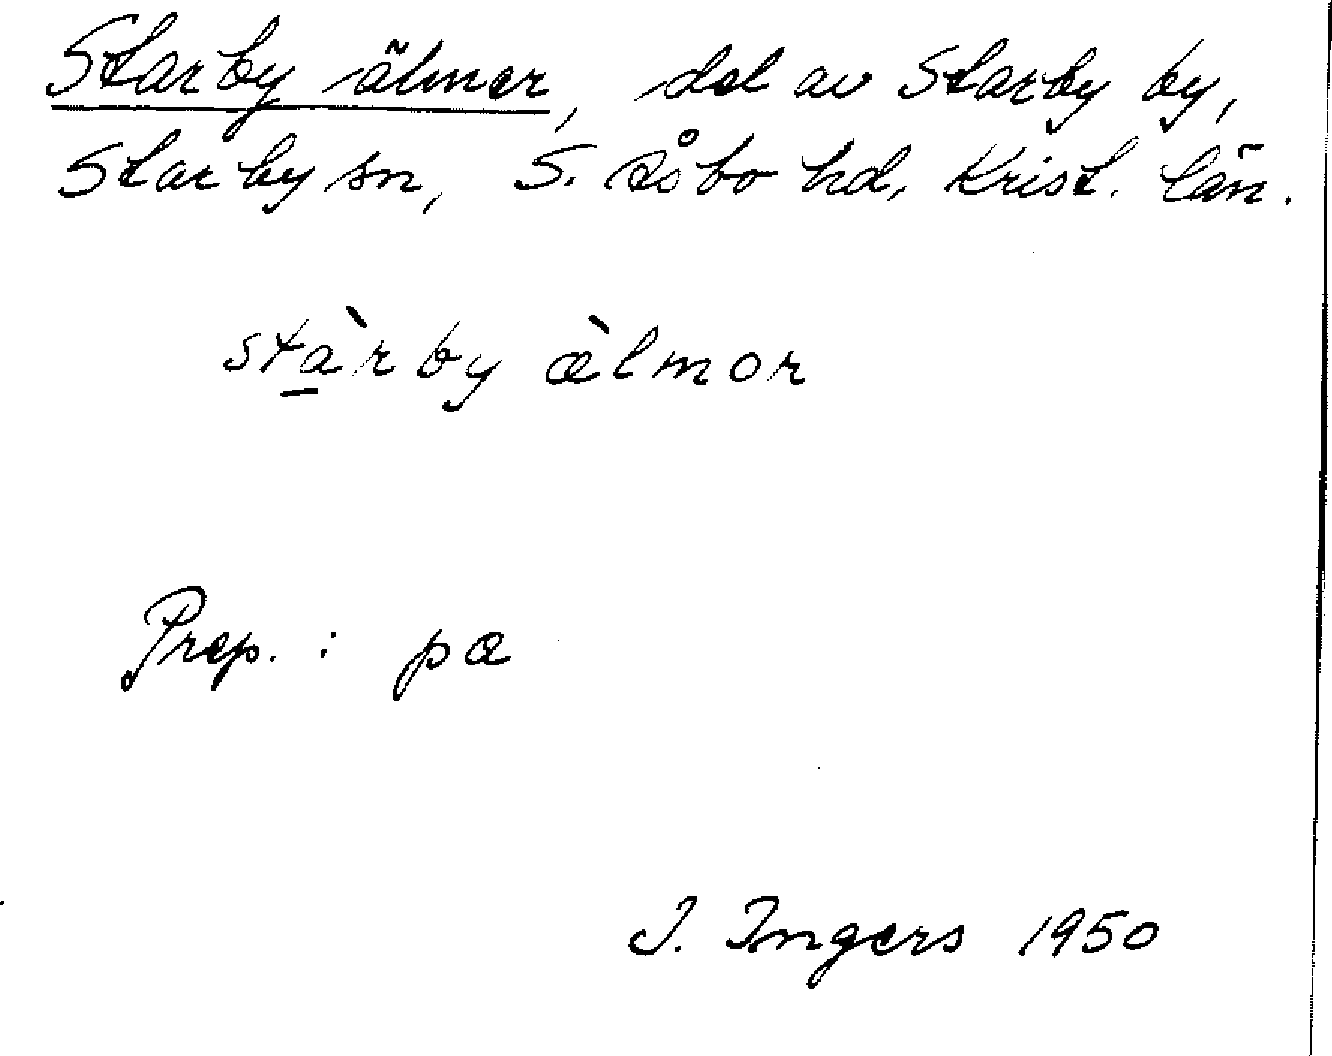 Starby älmer, del av Starby by,
Starby sn, S. Åsbo hd, Krist. län.
stà̱rby æ̀lmor
Prep.: pæ
I. Ingers 1950